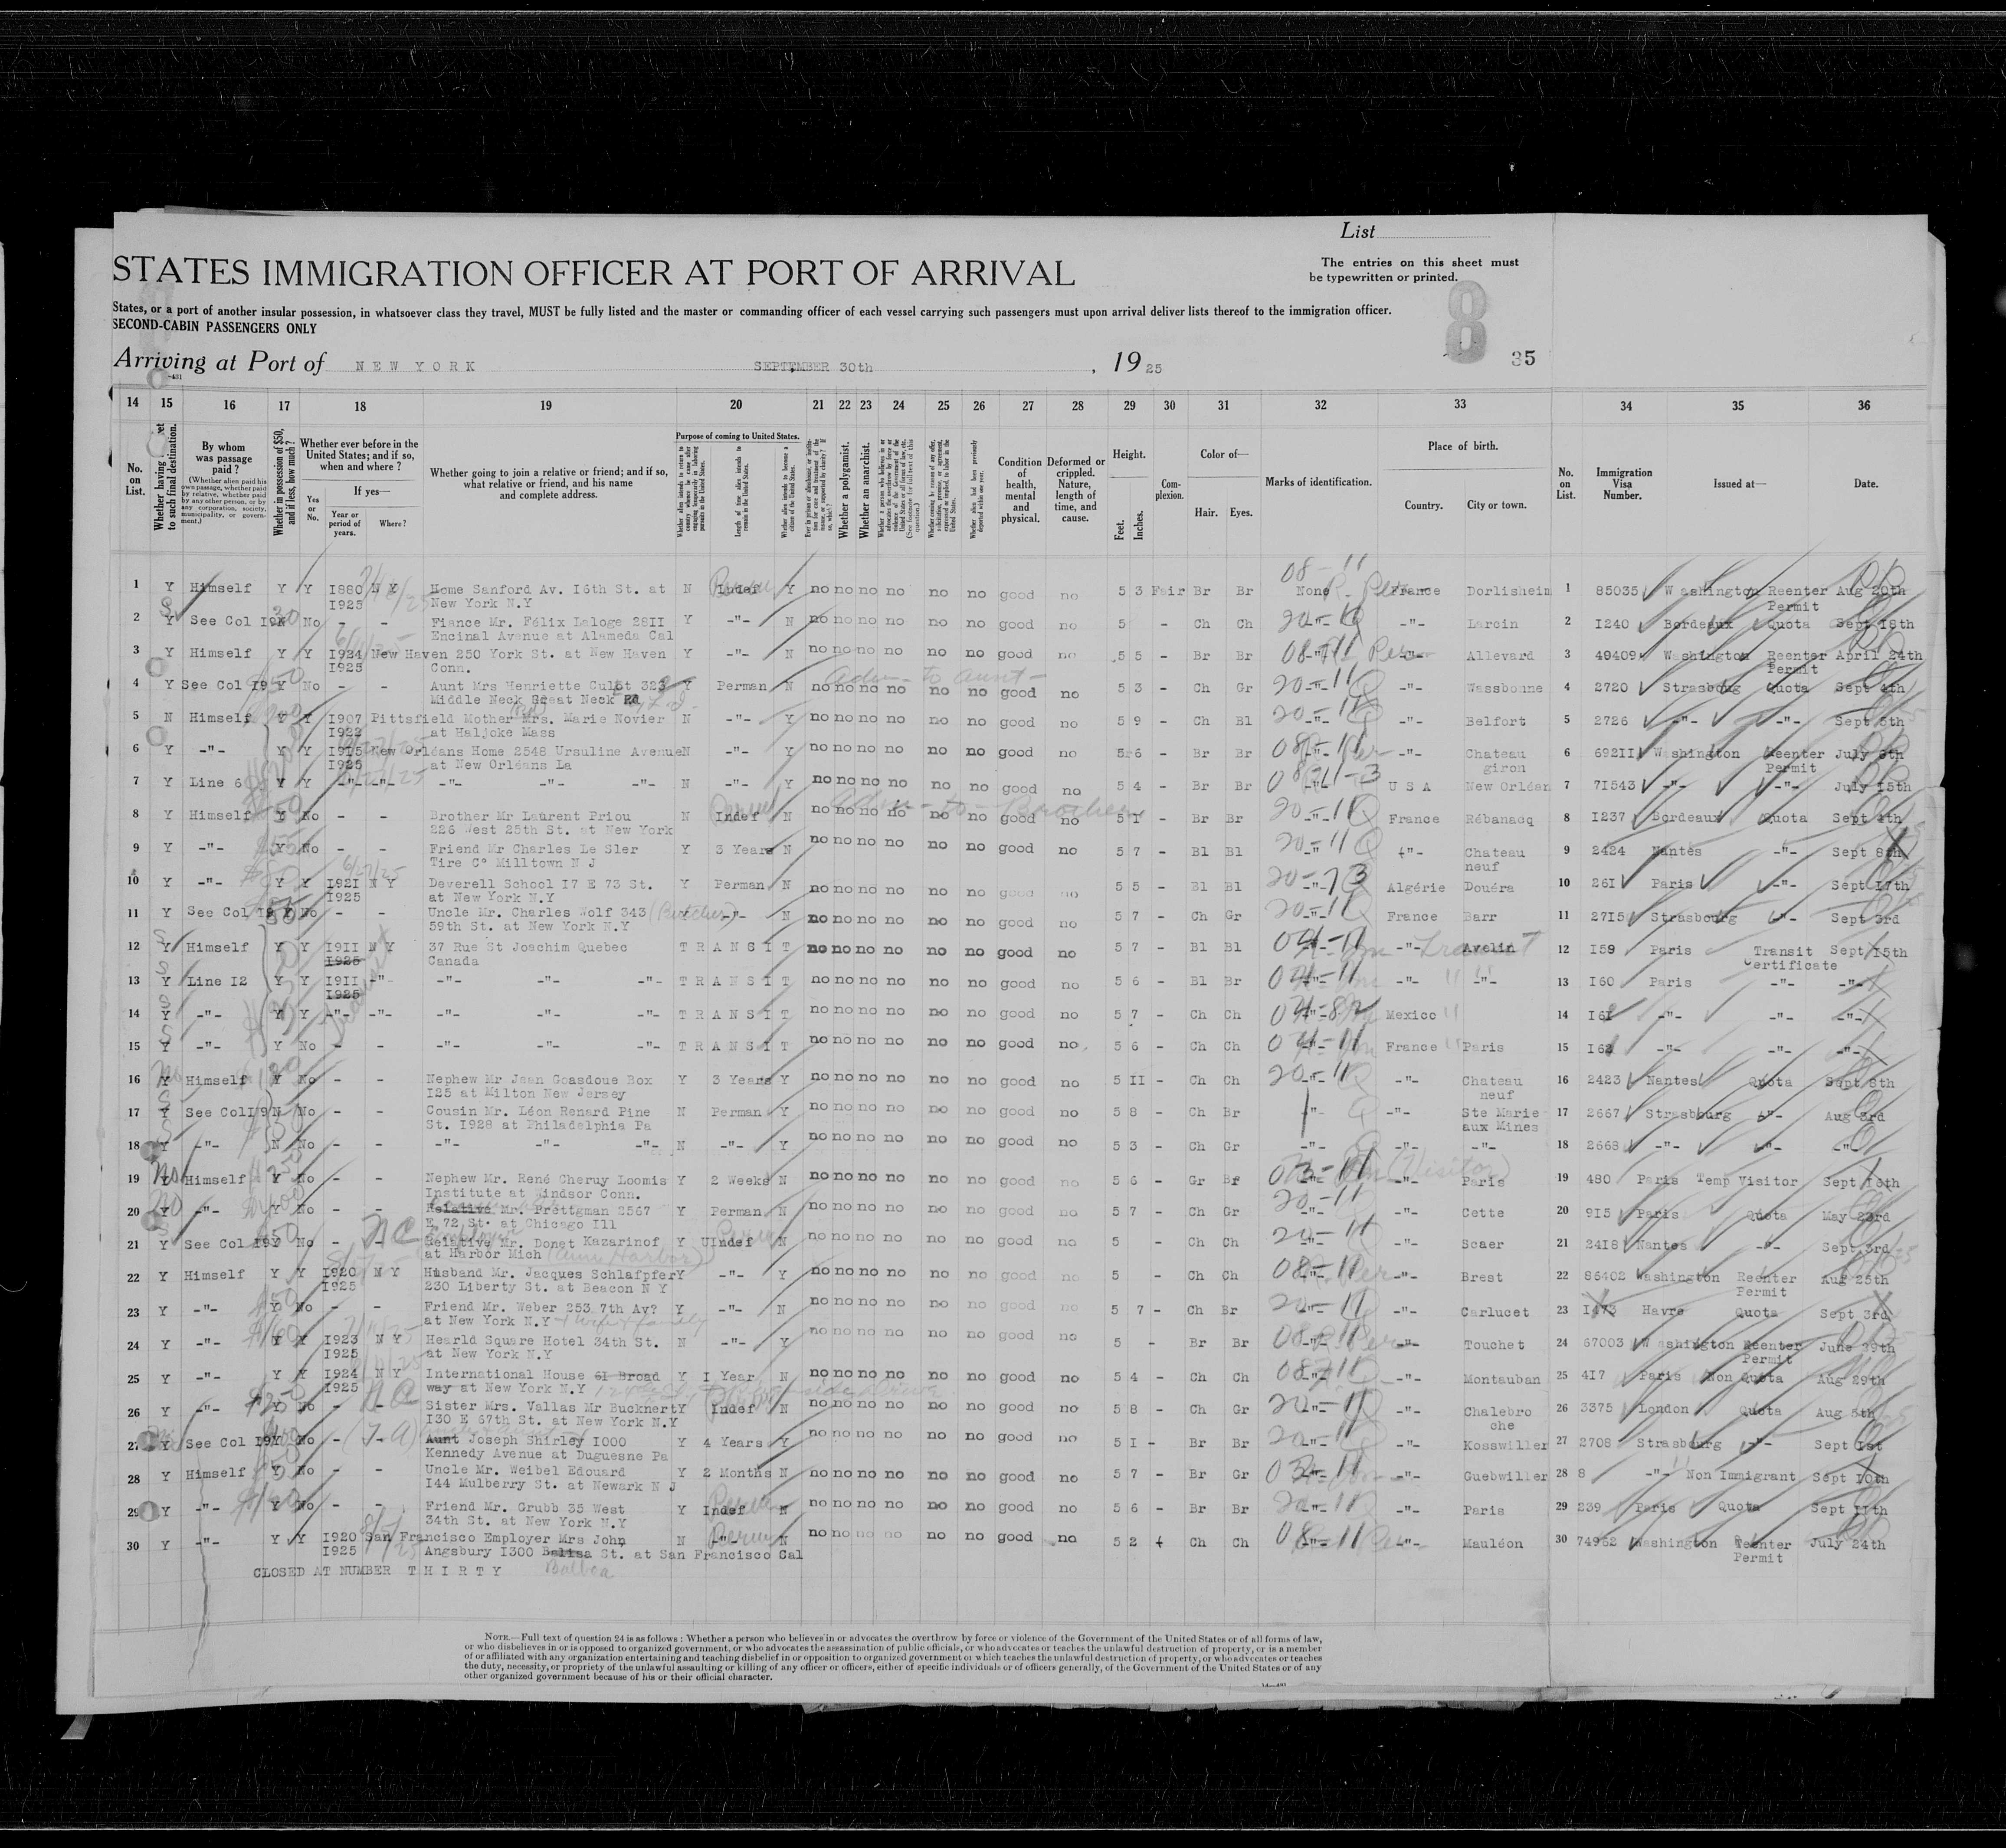 List
STATES IMMIGRATION OFFICER AT PORT OF ARRIVAL
The entries on this sheet must
be typewritten or printed.
States, or a port of another insular possession, in whatsoever class they travel, MUST be fully listed and the master or commanding officer of each vessel carrying such passengers must upon arrival deliver lists thereof to the immigration officer.
SECOND-CABIN PASSENGERS ONLY
8
35
Arriving at Port of NEW YORK SEPTEMBER 30th , 1925
14 15 16 17 18 19 20 21 22 23 24 25 26 27 28 29 30 31 32 33 34 35 36
No. on List.
Whether having
to such final destination.
By whom was passage paid?
(Whether alien paid his own passage, whether paid by relative, whether paid by any other person, or by any corporation, society, municipality, or government.)
Whether in possession of $50, and if less, how much?
Whether ever before in the United States; and if so, when and where?
Yes or No.
If yes—
Year or period of years.
Where?
Whether going to join a relative or friend; and if so, what relative or friend, and his name and complete address.
Purpose of coming to United States.
Length of time alien intends to remain in the United States.
Whether alien intends to become a citizen of the United States.
Whether a polygamist.
Whether an anarchist.
Condition of health, mental and physical.
Deformed or crippled. Nature, length of time, and cause.
Height.
Feet. Inches.
Complexion.
Color of—
Hair. Eyes.
Marks of identification.
Place of birth.
Country. City or town.
No. on List.
Immigration Visa Number.
Issued at—
Date.
1 Y Himself Y Y I880 N Y Home Sanford Av. I6th St. at N Indef Y no no no no no no good no 5 3 Fair Br Br None France Dorlisheim 1 85035 Washington Reenter Aug 20th
I925 New York N.Y Permit
2 Y See Col I9 No - - Fiance Mr. Félix Laloge 28II Y -"- N no no no no no no good no 5 - Ch Ch -"- -"- Larcin 2 I240 Bordeaux Quota Sept I8th
Encinal Avenue at Alameda Cal
3 Y Himself Y Y I924 New Haven 250 York St. at New Haven Y -"- N no no no no no no good no 5 5 - Br Br -"- -"- Allevard 3 49409 Washington Reenter April 24th
I925 Conn. Permit
4 Y See Col I9 Y No - - Aunt Mrs Henriette 323 Y Perman N no no no no no no good no 5 3 - Ch Gr -"- -"- Wassbonne 4 2720 Strasbourg Quota Sept 4th
Middle Neck Great Neck
5 N Himself Y Y I907 Pittsfield Mother Mrs. Marie Novier N -"- Y no no no no no no good no 5 9 - Ch Bl -"- -"- Belfort 5 2726 -"- -"- Sept 5th
I922 at Haljoke Mass
6 Y -"- Y Y I9I5 New Orléans Home 2548 Ursuline Avenue N -"- Y no no no no no no good no 5 6 - Br Br -"- -"- Chateau 6 692II Washington Reenter July 8th
I925 at New Orléans La giron Permit
7 Y Line 6 Y Y -"- -"- -"- -"- -"- N -"- Y no no no no no no good no 5 4 - Br Br -"- U S A New Orléan 7 7I543 -"- -"- July I5th
8 Y Himself Y No - - Brother Mr Laurent Priou N Indef N no no no no no no good no 5 I - Br Br -"- France Rébanacq 8 I237 Bordeaux Quota Sept 4th
226 West 25th St. at New York
9 Y -"- Y No - - Friend Mr Charles Le Sler Y 3 Years N no no no no no no good no 5 7 - Bl Bl -"- -"- Chateau 9 2424 Nantes -"- Sept 8th
Tire C° Milltown N J neuf
10 Y -"- Y Y I92I N Y Deverell School I7 E 73 St. Y Perman N no no no no no no good no 5 5 - Bl Bl -"- Algérie Douéra 10 26I Paris -"- Sept I7th
I925 at New York N.Y
11 Y See Col I9 Y No - - Uncle Mr. Charles Wolf 343 (Butcher) -"- N no no no no no no good no 5 7 - Ch Gr -"- France Barr 11 27I5 Strasbourg -"- Sept 3rd
59th St. at New York N.Y
12 Y Himself Y Y I9II N Y 37 Rue St Joachim Quebec T R A N S I T no no no no no no good no 5 7 - Bl Bl -"- -"- Avelin 12 I59 Paris Transit Sept I5th
I925 Canada Certificate
13 Y Line I2 Y Y I9II -"- -"- -"- -"- T R A N S I T no no no no no no good no 5 6 - Bl Br -"- -"- -"- 13 I60 Paris -"- -"-
I925
14 Y -"- Y Y -"- -"- -"- -"- -"- T R A N S I T no no no no no no good no 5 7 - Ch Ch -"- Mexico 14 I6I -"- -"- -"-
15 Y -"- Y No - - -"- -"- -"- T R A N S I T no no no no no no good no 5 6 - Ch Ch -"- France Paris 15 I62 -"- -"- -"-
16 Y Himself Y No - - Nephew Mr Jean Goasdoue Box Y 3 Years Y no no no no no no good no 5 II - Ch Ch -"- -"- Chateau 16 2423 Nantes Quota Sept 8th
I25 at Milton New Jersey neuf
17 Y See Col I9 N No - - Cousin Mr. Léon Renard Pine N Perman Y no no no no no no good no 5 8 - Ch Br -"- -"- Ste Marie 17 2667 Strasbourg -"- Aug 3rd
St. I928 at Philadelphia Pa aux Mines
18 Y -"- N No - - -"- -"- -"- N -"- Y no no no no no no good no 5 3 - Ch Gr -"- -"- -"- 18 2668 -"- -"- -"-
19 Y Himself Y No - - Nephew Mr. René Cheruy Loomis Y 2 Weeks N no no no no no no good no 5 6 - Gr Br -"- (Visitor) -"- Paris 19 480 Paris Temp Visitor Sept I6th
Institute at Windsor Conn.
20 Y -"- Y No - - Relative Mr. Prettgman 2567 Y Perman N no no no no no no good no 5 7 - Ch Gr -"- -"- Cette 20 9I5 Paris Quota May 23rd
E 72 St. at Chicago Ill
21 Y See Col I9 Y No - - Relative Mr. Donet Kazarinof Y Indef N no no no no no no good no 5 - Ch Ch -"- -"- Scaer 21 24I8 Nantes -"- Sept 3rd
at Harbor Mich (Ann Harbor)
22 Y Himself Y Y I920 N Y Husband Mr. Jacques Schlafpfer Y -"- Y no no no no no no good no 5 - Ch Ch -"- -"- Brest 22 86402 Washington Reenter Aug 25th
I925 230 Liberty St. at Beacon N Y Permit
23 Y -"- Y No - - Friend Mr. Weber 253 7th Av? Y -"- N no no no no no no good no 5 7 - Ch Br -"- -"- Carlucet 23 I473 Havre Quota Sept 3rd
at New York N.Y + wife + family
24 Y -"- Y Y I923 N Y Hearld Square Hotel 34th St. N -"- Y no no no no no no good no 5 - Br Br -"- -"- Touchet 24 67003 Washington Reenter June 29th
I925 at New York N.Y Permit
25 Y -"- Y Y I924 N Y International House 6I Broad Y I Year N no no no no no no good no 5 4 - Ch Ch -"- -"- Montauban 25 4I7 Paris Non Quota Aug 29th
I925 way at New York N.Y
26 Y -"- Y No - - Sister Mrs. Vallas Mr Bucknert Y Indef N no no no no no no good no 5 8 - Ch Gr -"- -"- Chalebro 26 3375 London Quota Aug 5th
I30 E 67th St. at New York N.Y che
27 Y See Col I9 Y No - - Aunt Joseph Shirley I000 Y 4 Years Y no no no no no no good no 5 I - Br Br -"- -"- Kosswiller 27 2708 Strasbourg -"- Sept Ist
Kennedy Avenue at Duguesne Pa
28 Y Himself Y No - - Uncle Mr. Weibel Edouard Y 2 Months N no no no no no no good no 5 7 - Br Gr -"- -"- Guebwiller 28 8 -"- Non Immigrant Sept I0th
I44 Mulberry St. at Newark N J
29 Y -"- Y No - - Friend Mr. Grubb 35 West Y Indef N no no no no no no good no 5 6 - Br Br -"- -"- Paris 29 239 Paris Quota Sept IIth
34th St. at New York N.Y
30 Y -"- Y Y I920 San Francisco Employer Mrs John N -"- N no no no no no no good no 5 2 Ch Ch -"- -"- Mauléon 30 74962 Washington Reenter July 24th
I925 Angsbury I300 Balisa St. at San Francisco Cal Permit
CLOSED AT NUMBER T H I R T Y Balboa
NOTE.—Full text of question 24 is as follows: Whether a person who believes in or advocates the overthrow by force or violence of the Government of the United States or of all forms of law,
or who disbelieves in or is opposed to organized government, or who advocates the assassination of public officials, or who advocates or teaches the unlawful destruction of property, or is a member
of or affiliated with any organization entertaining and teaching disbelief in or opposition to organized government or which teaches the unlawful destruction of property, or who advocates or teaches
the duty, necessity, or propriety of the unlawful assaulting or killing of any officer or officers, either of specific individuals or of officers generally, of the Government of the United States or of any
other organized government because of his or their official character.